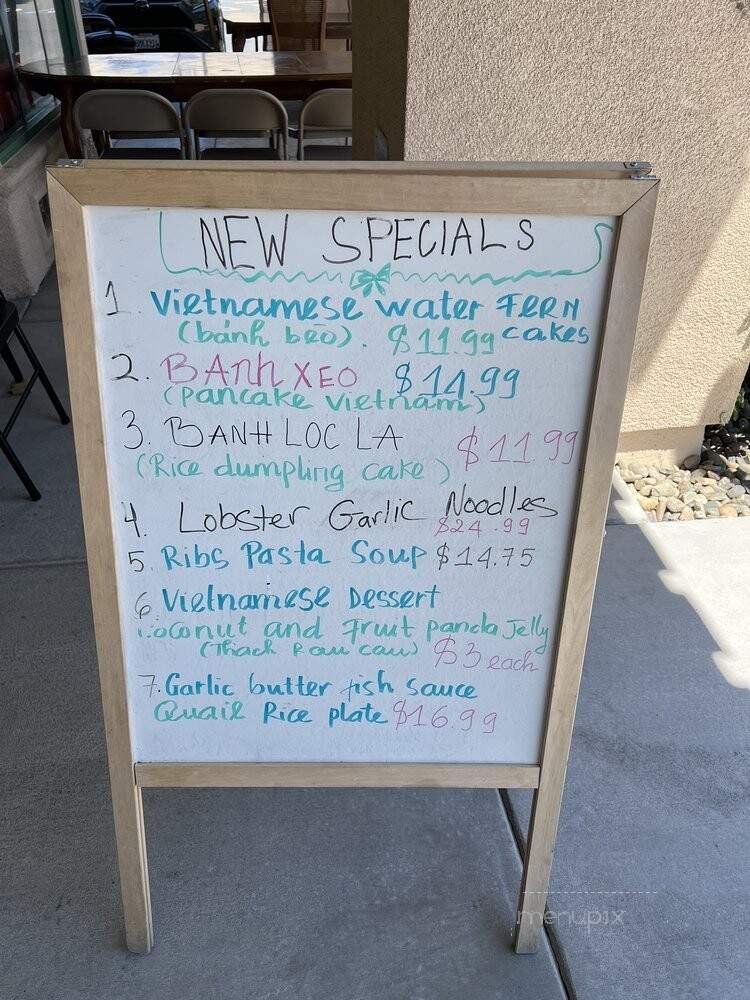 NEW SPECIALS
1. Vietnamese water FERN
(bánh bèo). $11.99 cakes
2. BAnh XEO $14.99
(pancake vietnam)
3. BANH LOC LA $11.99
(Rice dumpling cake)
4. Lobster Garlic Noodles
$24.99
5. Ribs Pasta Soup $14.75
6. Vietnamese Dessert
Coconut and Fruit panda Jelly
(Thach Rau cau) $3 each
7. Garlic butter fish sauce
Quail Rice plate $16.99
menupix